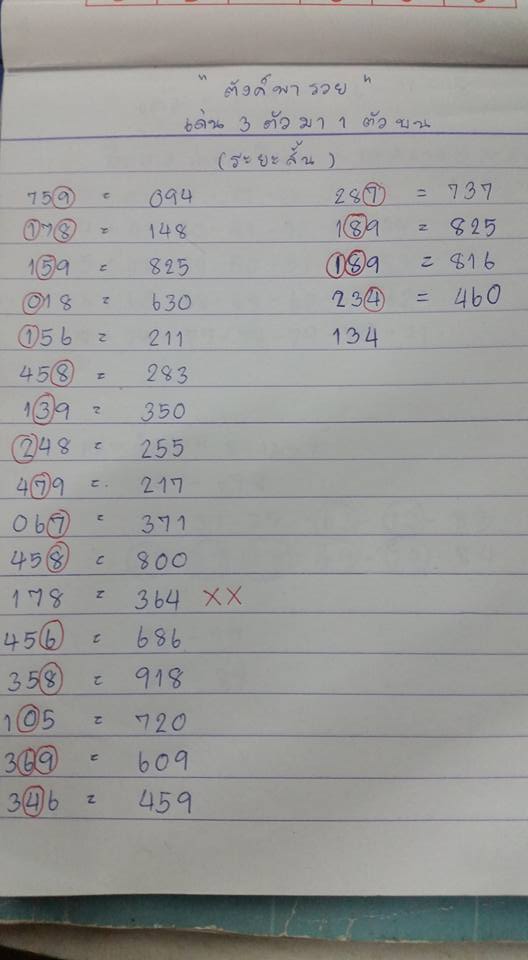 " ตังค์พารวย "
เด่น 3 ตัวมา 1 ตัวบน
(ระยะสั้น)
759 = 094
178 = 148
159 = 825
018 = 630
156 = 211
458 = 283
139 = 350
248 = 255
479 = 217
067 = 371
458 = 800
178 = 364 XX
456 = 686
358 = 918
105 = 720
369 = 609
346 = 459
287 = 737
189 = 825
189 = 816
234 = 460
134